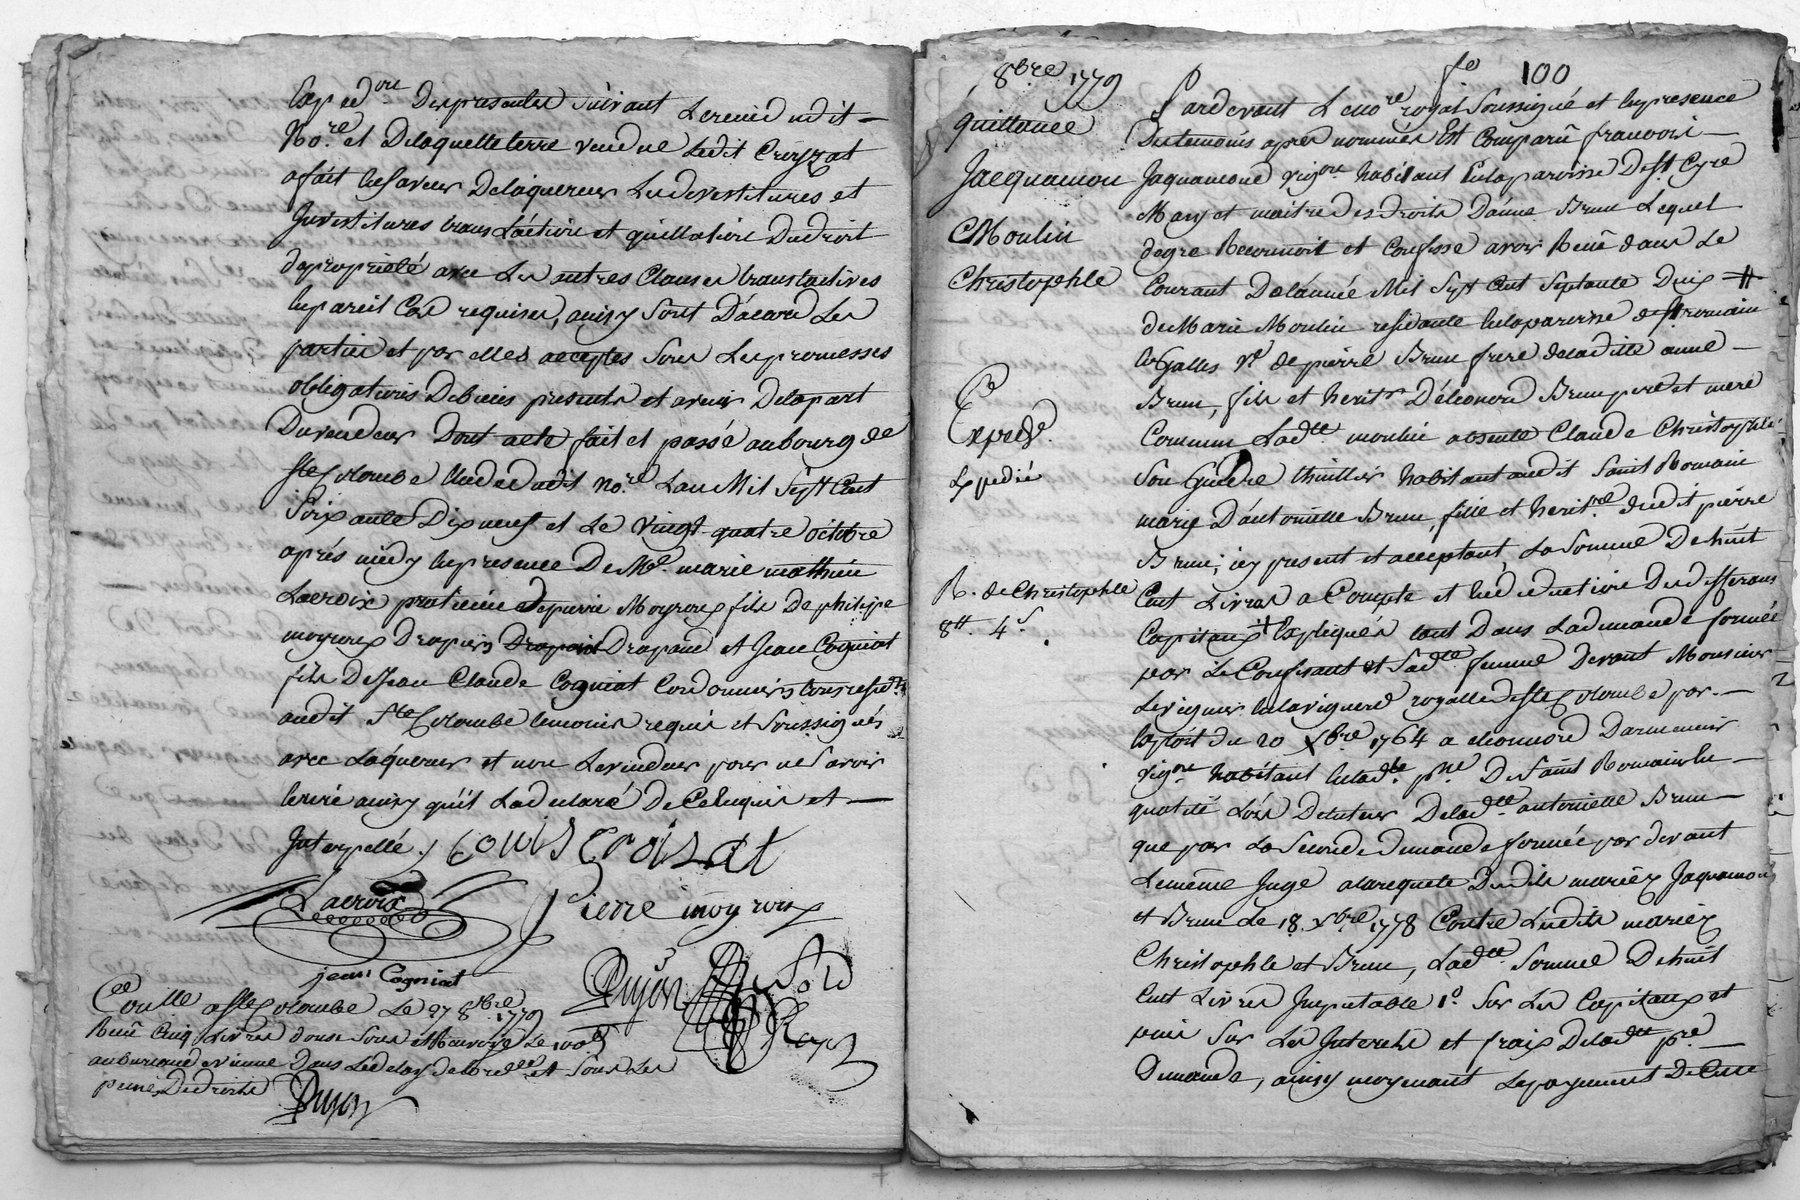 Exped.on Des presentes Suivant Lereceu dudit
No.re et Delaquelle terre vendue Ledit Croyzat
afait en faveur Delaquereur Les devestitures et
Investitures translation et quittation Du droit
depropriété avec Les autres Clauses translatives
en pareil Cas requises, ainsy Sont D'acord Les
parties et par elles acceptés Sous Les promesses
obligations De biens presents et avenir Delapart
Du vendeur Dont acte fait et passé au bourg de
Ste Colombe Etude dudit no.re Lan Mil Sept Cent
Soixante Dix neuf et Le vingt quatre octobre
aprés midy en presence De Me. marie mathieu
Lacroix praticien et pierre Moyroux fils De philipe
moyroux Drapier Drapant et Jean Cogniat
fils De Jean Claude Cogniat Cordonniers tous resid.ts
audit Ste Colombe temoins requis et Soussignés
avec Laquereur et non Le vendeur pour ne Savoir
ecrire ainsy qu'il La declaré De Ce enquis et
Interpellé.
Louis Croizat
Lacroix
Pierre moyroux
jean Cogniat
Dujon
Collé a Ste Colombe Le 27 8bre 1779
Receu Cinq Livres douze Sous et Renvoyé Le 100e
au bureau de vienne Dans Le delay de lord.ce et Sous Les
peines De droits
Dujon
fo 100
8bre 1779
quittance
Jacquamon
Moulin
Christophle
Ce
Exped.
Expedié
R. de Christophle
8tt. 4s
Pardevant Le no.re royal Soussigné et en presence
Des temoins aprés nommés Est Comparû francois
Jaquamond vig.on habitant en la paroisse De St Cyre
Mary et maitre des droits D'anne Brun Lequel
de gre Reconnoit et Confesse avoir Receû dans Le
Courant De lannée Mil Sept Cent Septante Dix
de Marie Moulin residante en la paroisse de St romain
en Galles v.e de pierre Brun frere de la ditte anne
Brun, fils et herit.r D'éleonord Brun pere et mere
Commun Lad.tte moulin absente Claude Christophle
Son Gendre thuillier habitant audit Saint Romain
mary D'antoinette Brun, fille et herit.re dudit pierre
Brun, icy present et acceptant La Somme De huit
Cent Livres a Compte et en deduction Des differans
Capitaux Expliqués tant Dans La demande formée
par Le Confessant et Sad.tte femme Devant Monsieur
Le viguier en la viguerie royalle de Ste Colombe par
Exploit du 20 Xbre 1764 a eleonnord Darmeneir
vig.on habitant en lad.tte p.sse De Saint Romain en
qualité Lors De tuteur De lad.tte antoinette Brun
que par La Seconde Demande formée par devant
Le même Juge a la requete Desdits mariéz Jaquamon
et Brun Le 18. Xbre 1778 Contre Lesdits mariéz
Christophle et Brun, Lad.tte Somme De huit
Cent Livres Imputable 1o. Sur Les Capitaux et
puis Sur Les Interets et fraix De lad.tte p.re
Demande, ainsy moyenant Le payement De Cette